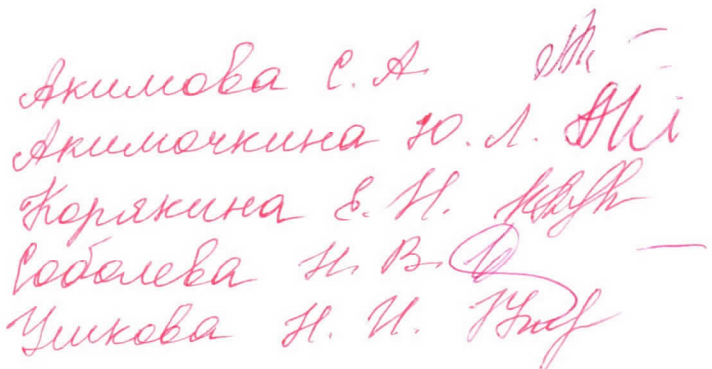 Акимова С. А.
Акимочкина Ю. Л.
Корякина Е. Н.
Соболева Н. В.
Ушкова Н. И.